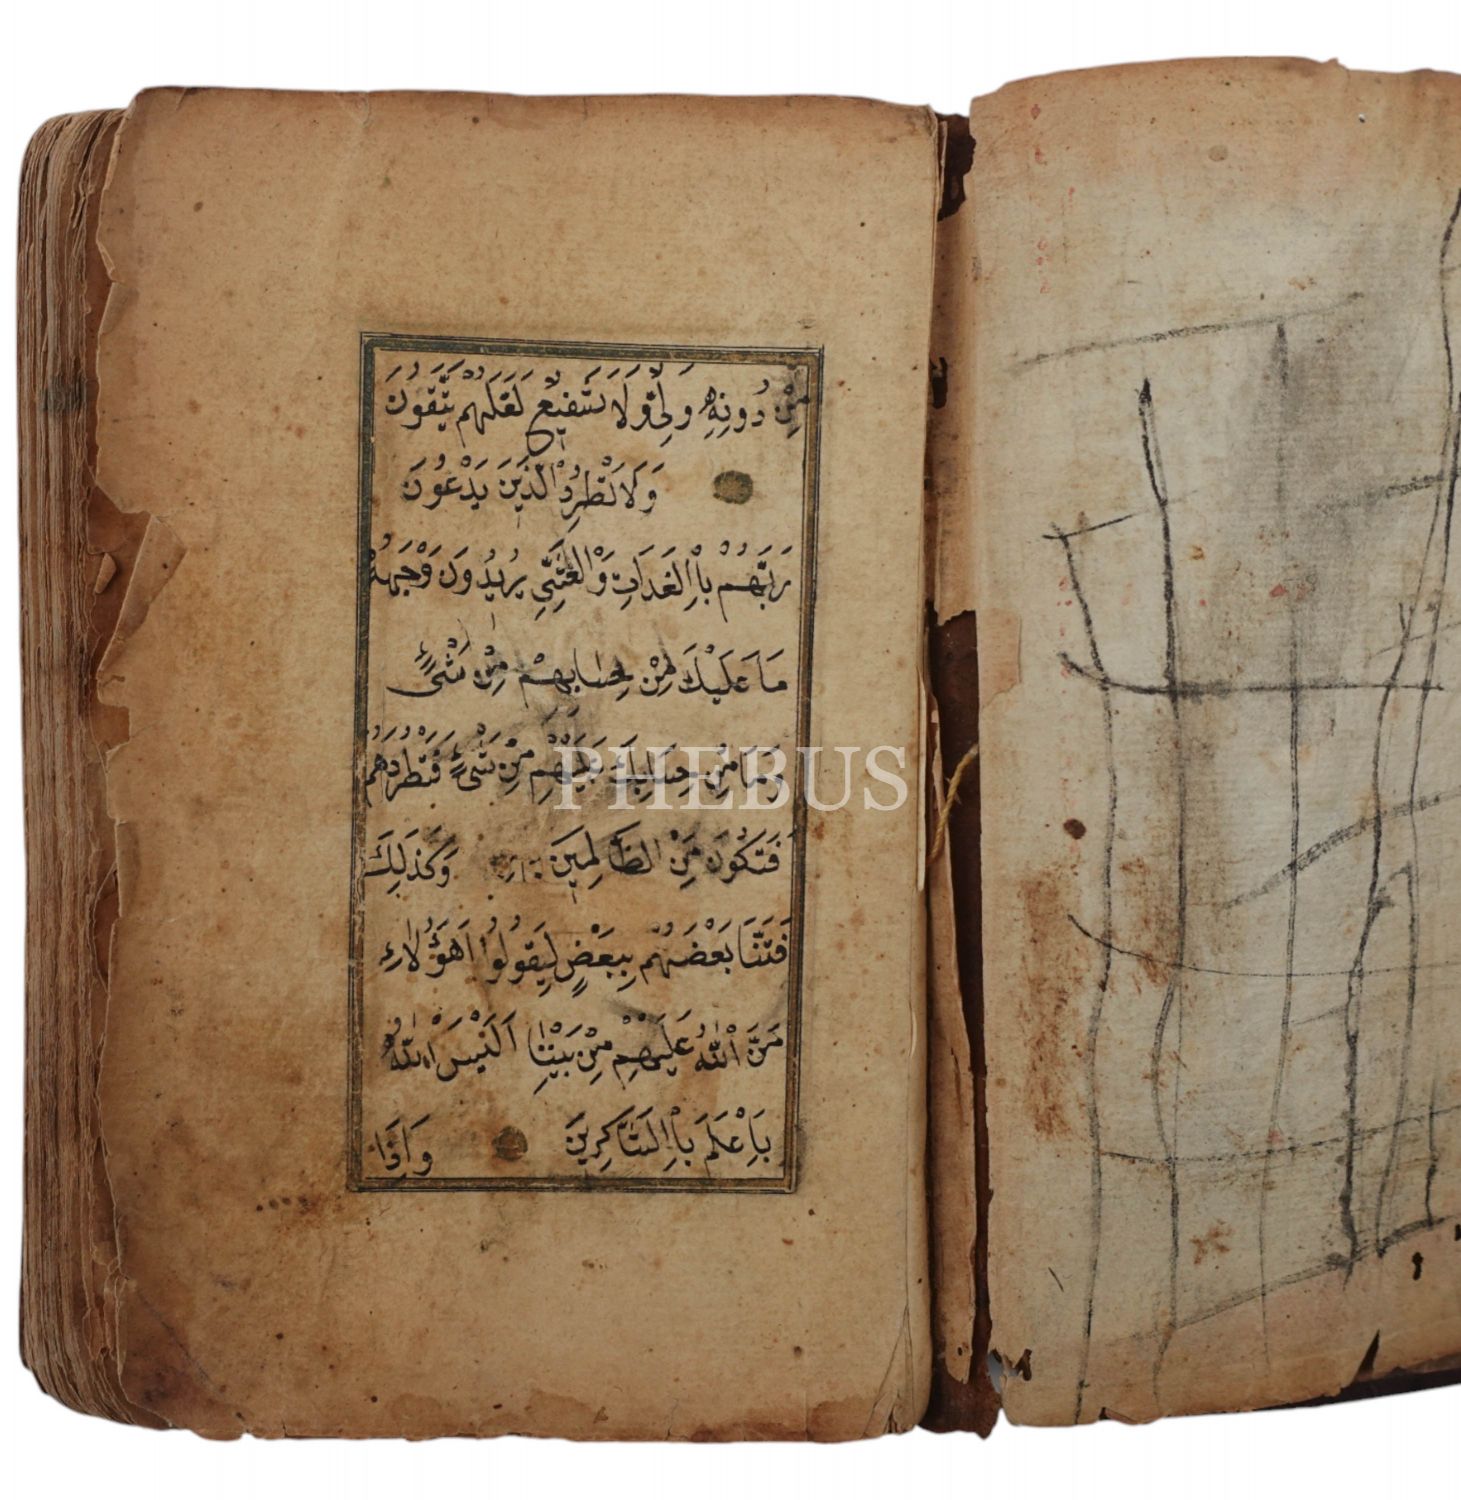 مِنْ دُونِهِ وَلِيٌّ وَلَا شَفِيعٌ لَعَلَّهُمْ يَتَّقُونَ
وَلَا تَطْرُدْ الَّذِينَ يَدْعُونَ
رَبَّهُمْ بِاالْغَدَاتِ وَالْعَشِيِّ يُرِيدُونَ وَجْهَهُ
مَا عَلَيْكَ مِنْ حِسَابِهِمْ مِنْ شَيْءٍ
وَمَا مِنْ حِسَابِكَ عَلَيْهِمْ مِنْ شَيْءٍ فَتَطْرُدَهُمْ
فَتَكُونَ مِنَ الظَّالِمِينَ وَكَذَلِكَ
فَتَنَّا بَعْضَهُمْ بِبَعْضٍ لِيَقُولُوا اَهَؤُلَاءِ
مَنَّ اللّٰهُ عَلَيْهِمْ مِنْ بَيْنِنَا اَلَيْسَ اللّٰهُ
بِاَعْلَمَ بِاالشَّاكِرِينَ وَاِذَا
PHEBUS